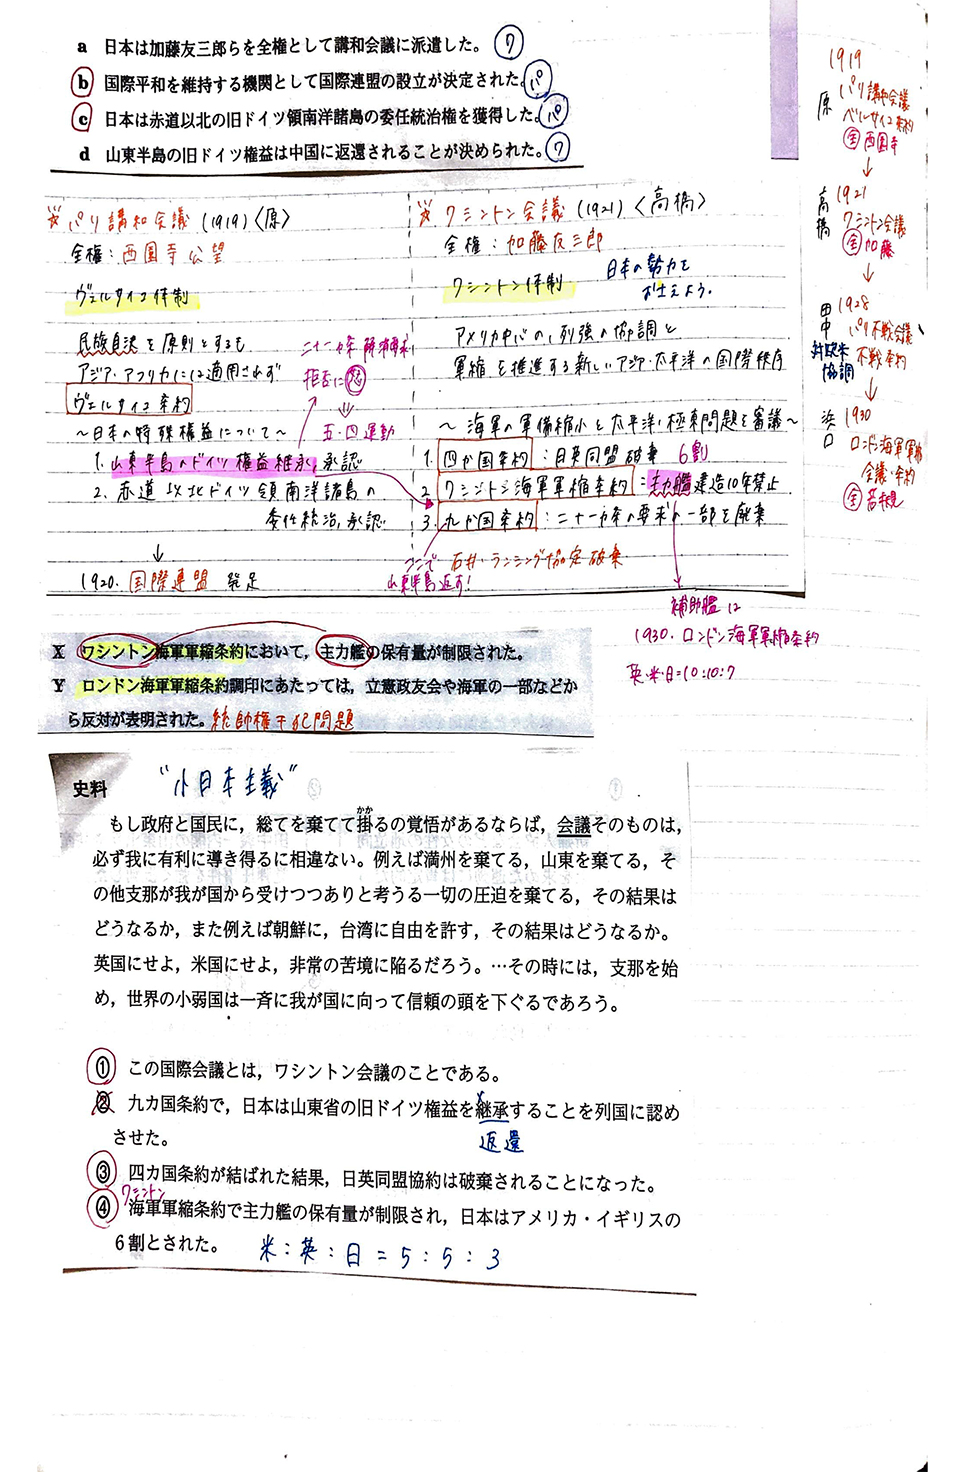 a 日本は加藤友三郎らを全権として講和会議に派遣した。 ワ
b 国際平和を維持する機関として国際連盟の設立が決定された。 パ
c 日本は赤道以北の旧ドイツ領南洋諸島の委任統治権を獲得した。 パ
d 山東半島の旧ドイツ権益は中国に返還されることが決められた。 ワ
パリ講和会議 (1919) 〈原〉
全権：西園寺公望
ヴェルサイユ体制
民族自決を原則とするも
アジア・アフリカには適用されず
ヴェルサイユ条約
〜日本の特殊権益について〜
1. 山東半島のドイツ権益継承, 承認
2. 赤道以北ドイツ領南洋諸島の
委任統治, 承認
↓
1920. 国際連盟 発足
拒否に怒
五・四運動
ワシントン会議 (1921) 〈高橋〉
全権：加藤友三郎
ワシントン体制
日本の勢力を
おさえよう。
アメリカ中心の, 列強の協調と
軍縮を推進する新しいアジア・太平洋の国際秩序
〜海軍の軍備縮小と太平洋・極東問題を審議〜
1. 四か国条約：日英同盟破棄 6割
2. ワシントン海軍軍縮条約：主力艦建造10年禁止
3. 九か国条約：二十一か条の要求の一部を廃棄
石井・ランシング協定破棄
ここで
山東半島返す!
補助艦は
1930. ロンドン海軍軍縮条約
英・米・日=10:10:7
1919
原 パリ講和会議
ベルサイユ条約
全 西園寺
↓
1921
高橋 ワシントン会議
全 加藤
↓
1928
田中 パリ不戦会議
不戦条約
対欧米
協調
↓
浜口 1930
ロンドン海軍軍縮
会議・条約
全 若槻
X ワシントン海軍軍縮条約において，主力艦の保有量が制限された。
Y ロンドン海軍軍縮条約調印にあたっては，立憲政友会や海軍の一部などか
ら反対が表明された。 統帥権干犯問題
史料 "小日本主義"
もし政府と国民に，総てを棄てて掛るの覚悟があるならば，会議そのものは，
かか
必ず我に有利に導き得るに相違ない。例えば満州を棄てる，山東を棄てる，そ
の他支那が我が国から受けつつありと考うる一切の圧迫を棄てる，その結果は
どうなるか，また例えば朝鮮に，台湾に自由を許す，その結果はどうなるか。
英国にせよ，米国にせよ，非常の苦境に陥るだろう。…その時には，支那を始
め，世界の小弱国は一斉に我が国に向って信頼の頭を下ぐるであろう。
① この国際会議とは，ワシントン会議のことである。
② 九カ国条約で，日本は山東省の旧ドイツ権益を継承することを列国に認め
させた。
返還
③ 四カ国条約が結ばれた結果，日英同盟協約は破棄されることになった。
ワシントン
④ 海軍軍縮条約で主力艦の保有量が制限され，日本はアメリカ・イギリスの
6割とされた。 米：英：日=5：5：3